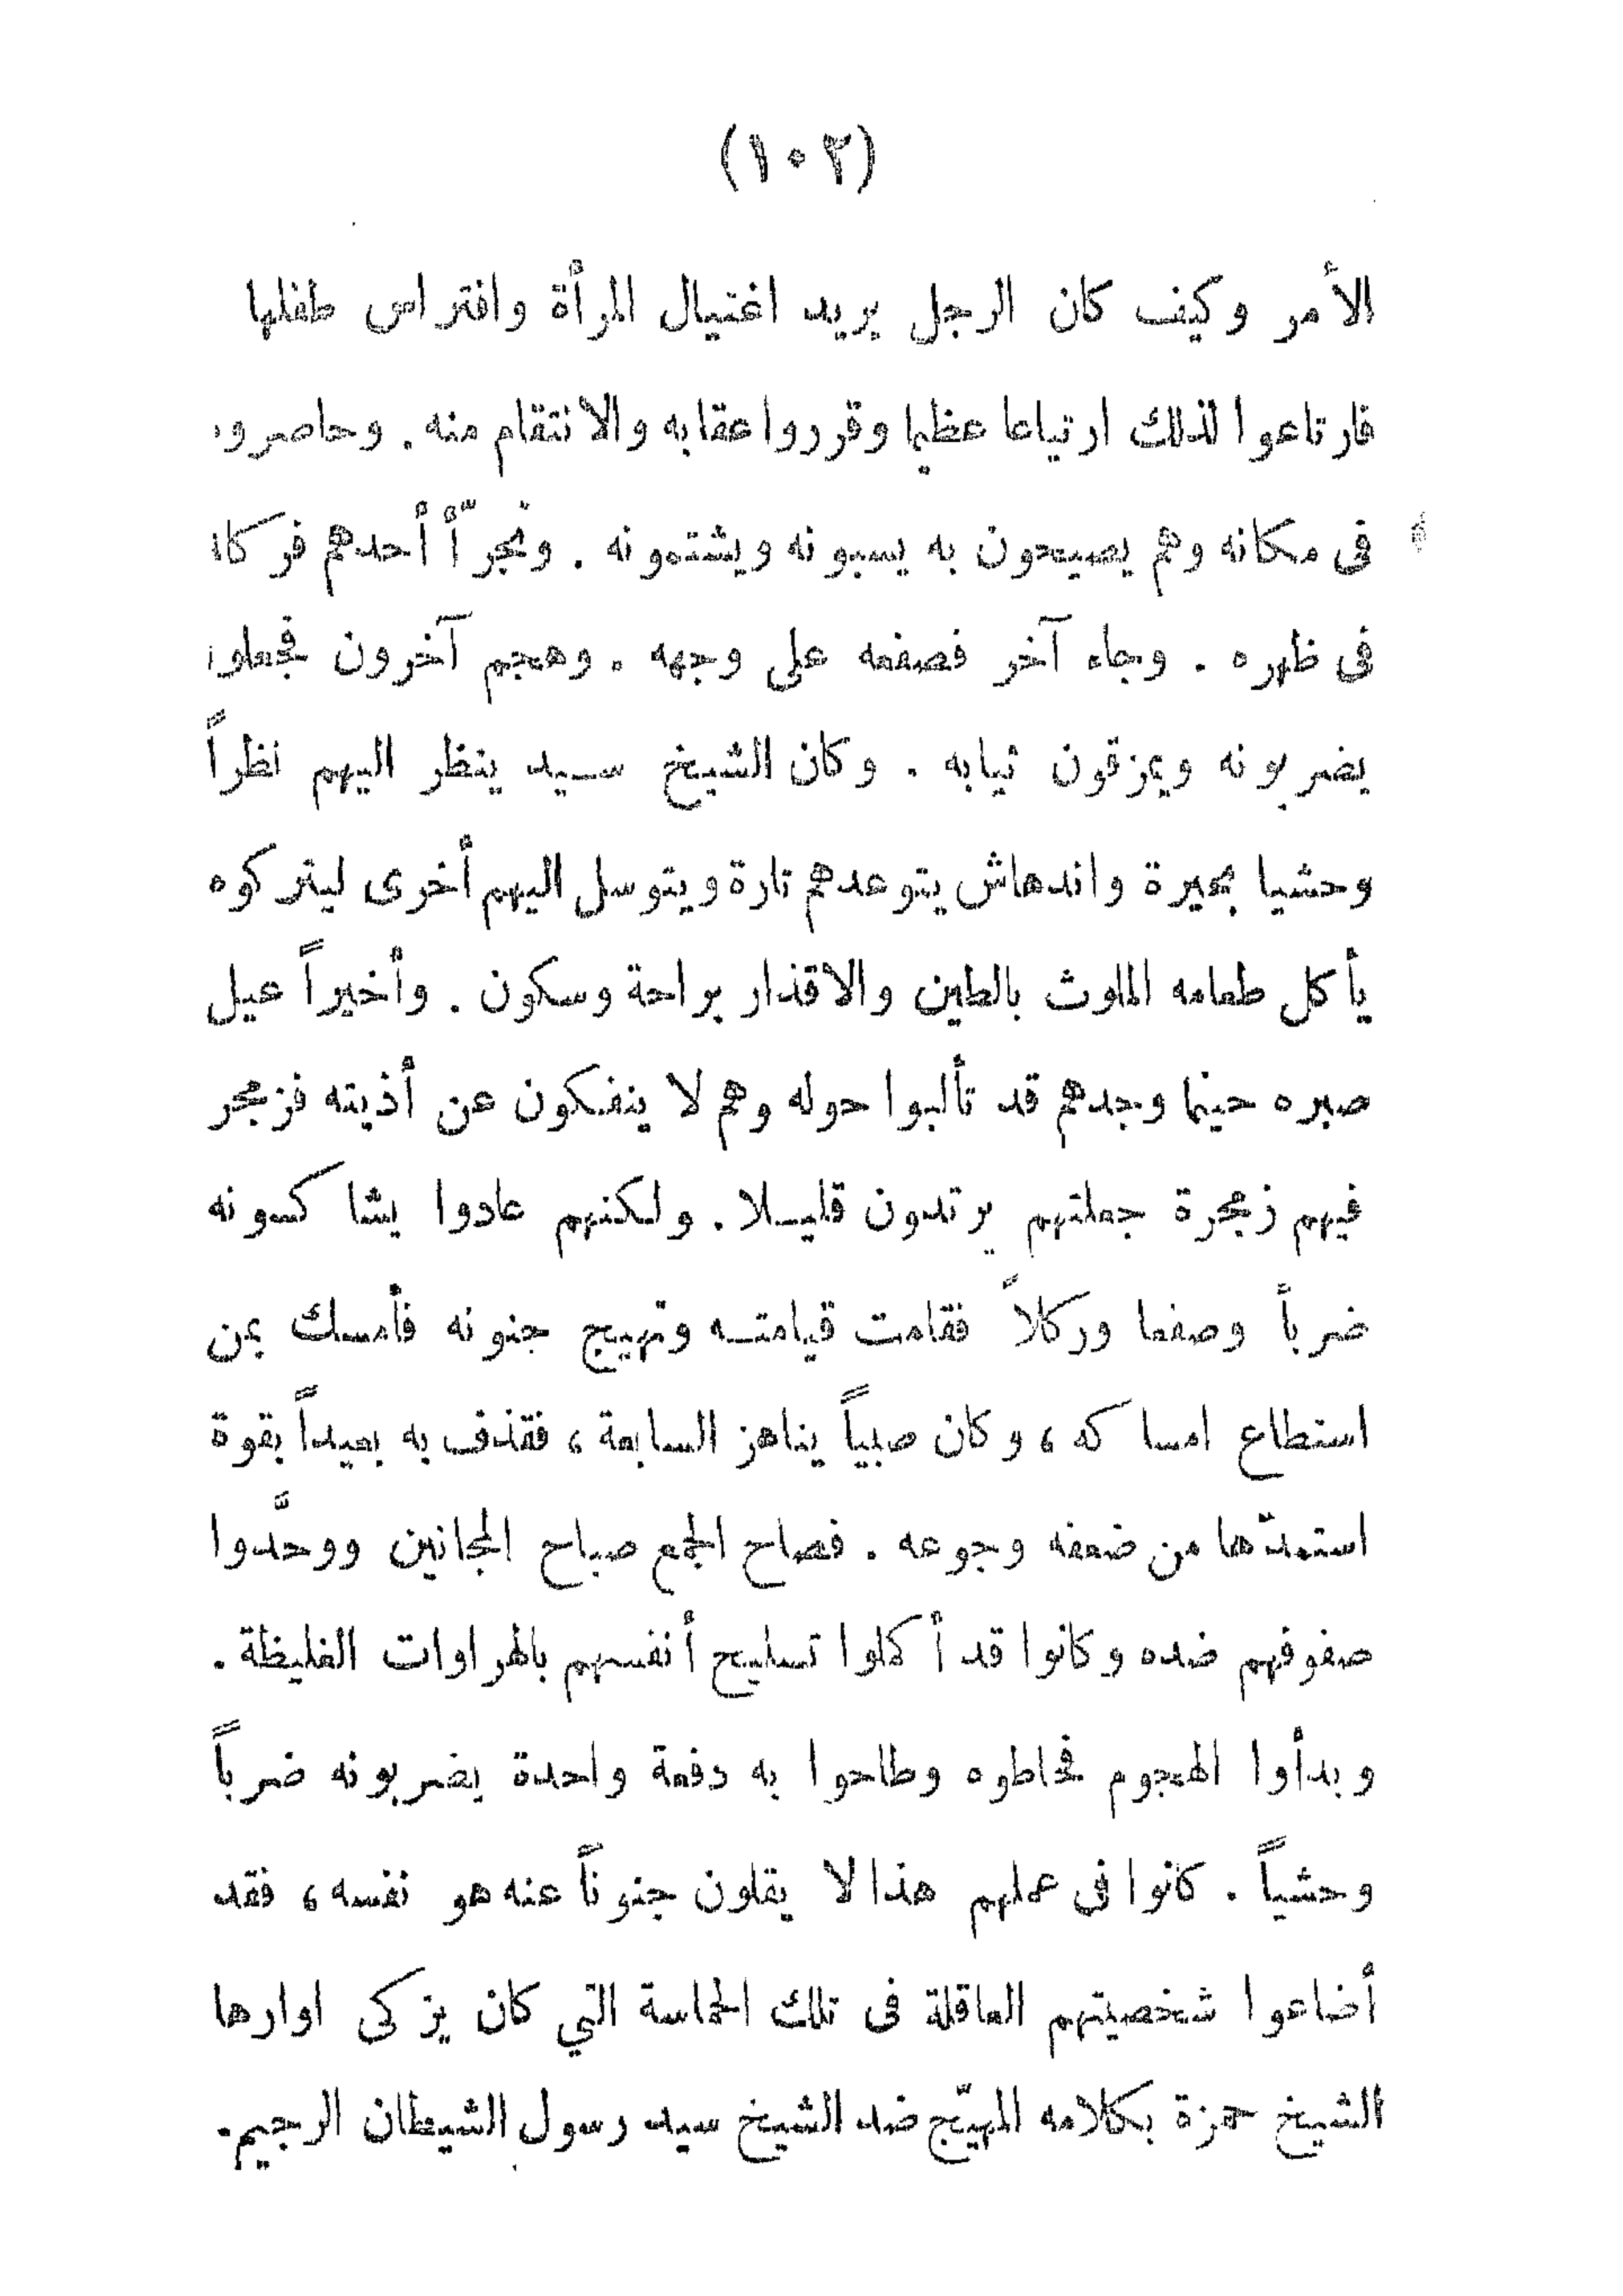 (١٠٢)
الأمر وكيف كان الرجل يريد اغتيال المرأة وافتراس طفلها
فارتاعوا لذلك ارتياعا عظيما وقرروا عقابه والانتقام منه. وحاصروه
فى مكانه وهم يصيحون به يسبونه ويشتمونه . وتجرّأ أحدهم فركله
فى ظهره . وجاء آخر فصفعه على وجهه . وهجم آخرون فجعلوا
يضربونه ويمزقون ثيابه . وكان الشيخ سيد ينظر اليهم نظراً
وحشيا بحيرة واندهاش يتوعدهم تارة ويتوسل اليهم أخرى ليتركوه
يأكل طعامه الملوث بالطين والاقذار براحة وسكون . وأخيراً عيل
صبره حينما وجدهم قد تألبوا حوله وهم لا ينفكون عن أذيته فزمجر
فيهم زمجرة جعلتهم يرتدون قليلا . ولكنهم عادوا يشاكسونه
ضرباً وصفعا وركلاً فقامت قيامته وتهيج جنونه فأمسك بمن
استطاع امساكه ، وكان صبياً يناهز السابعة ، فقذف به بعيداً بقوة
استمدّها من ضعفه وجوعه . فصاح الجمع صياح المجانين ووحَّدوا
صفوفهم ضده وكانوا قد أكملوا تسليح أنفسهم بالهراوات الغليظة .
وبدأوا الهجوم فحاطوه وطاحوا به دفعة واحدة يضربونه ضرباً
وحشياً . كانوا فى عملهم هذا لا يقلون جنوناً عنه هو نفسه ، فقد
أضاعوا شخصيتهم العاقلة فى تلك الحماسة التي كان يزكى اوارها
الشيخ حمزة بكلامه المهيّج ضد الشيخ سيد رسول الشيطان الرجيم.